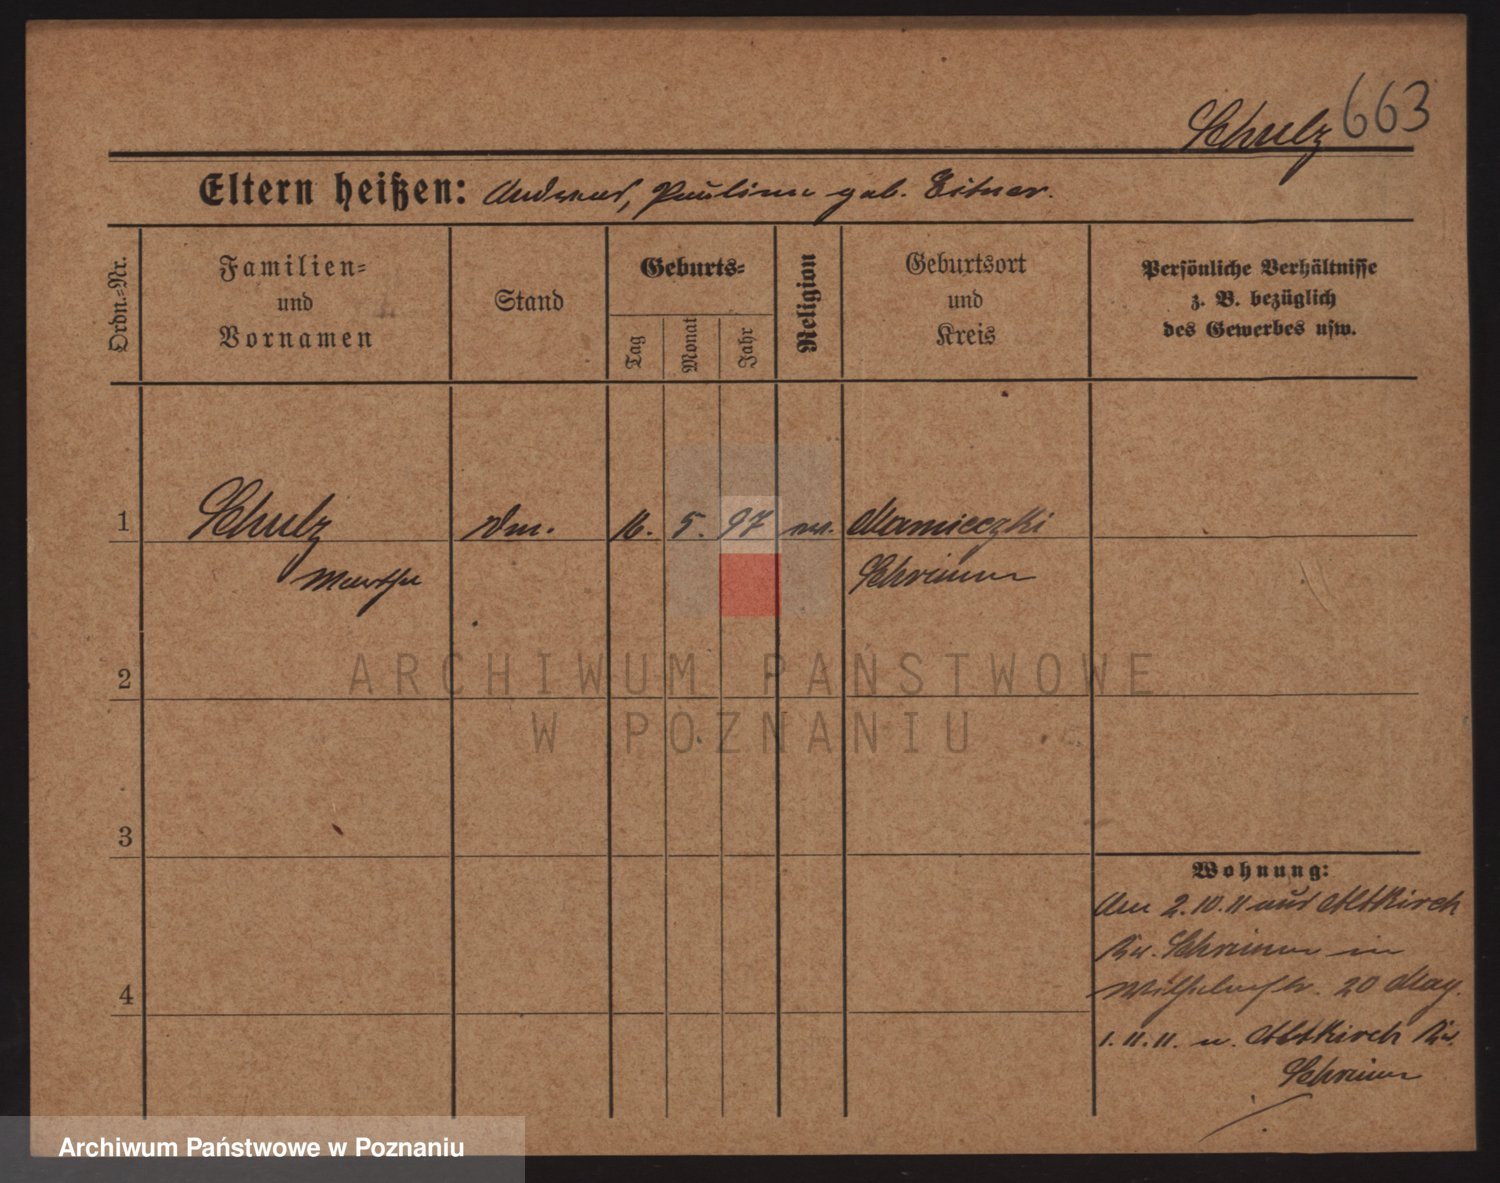 Schulz 663
Eltern heißen: Andreas, Pauline geb. Bitner.
Ordn.-Nr.
Familien-
und
Vornamen
Stand
Geburts-
Tag
Monat
Jahr
Religion
Geburtsort
und
Kreis
Persönliche Verhältnisse
z. B. bezüglich
des Gewerbes usw.
1 Schulz 16. 5. 97 ev.
Martha Schrimm
2
ARCHIWUM PAŃSTWOWE
W POZNANIU
3
Wohnung:
Am 2.10.11 aus Altkirch
Kr. Schrimm in
4
Wilhelmstr. 20 Mag.
1.11.11. n. Altkirch Kr.
Schrimm
Archiwum Państwowe w Poznaniu